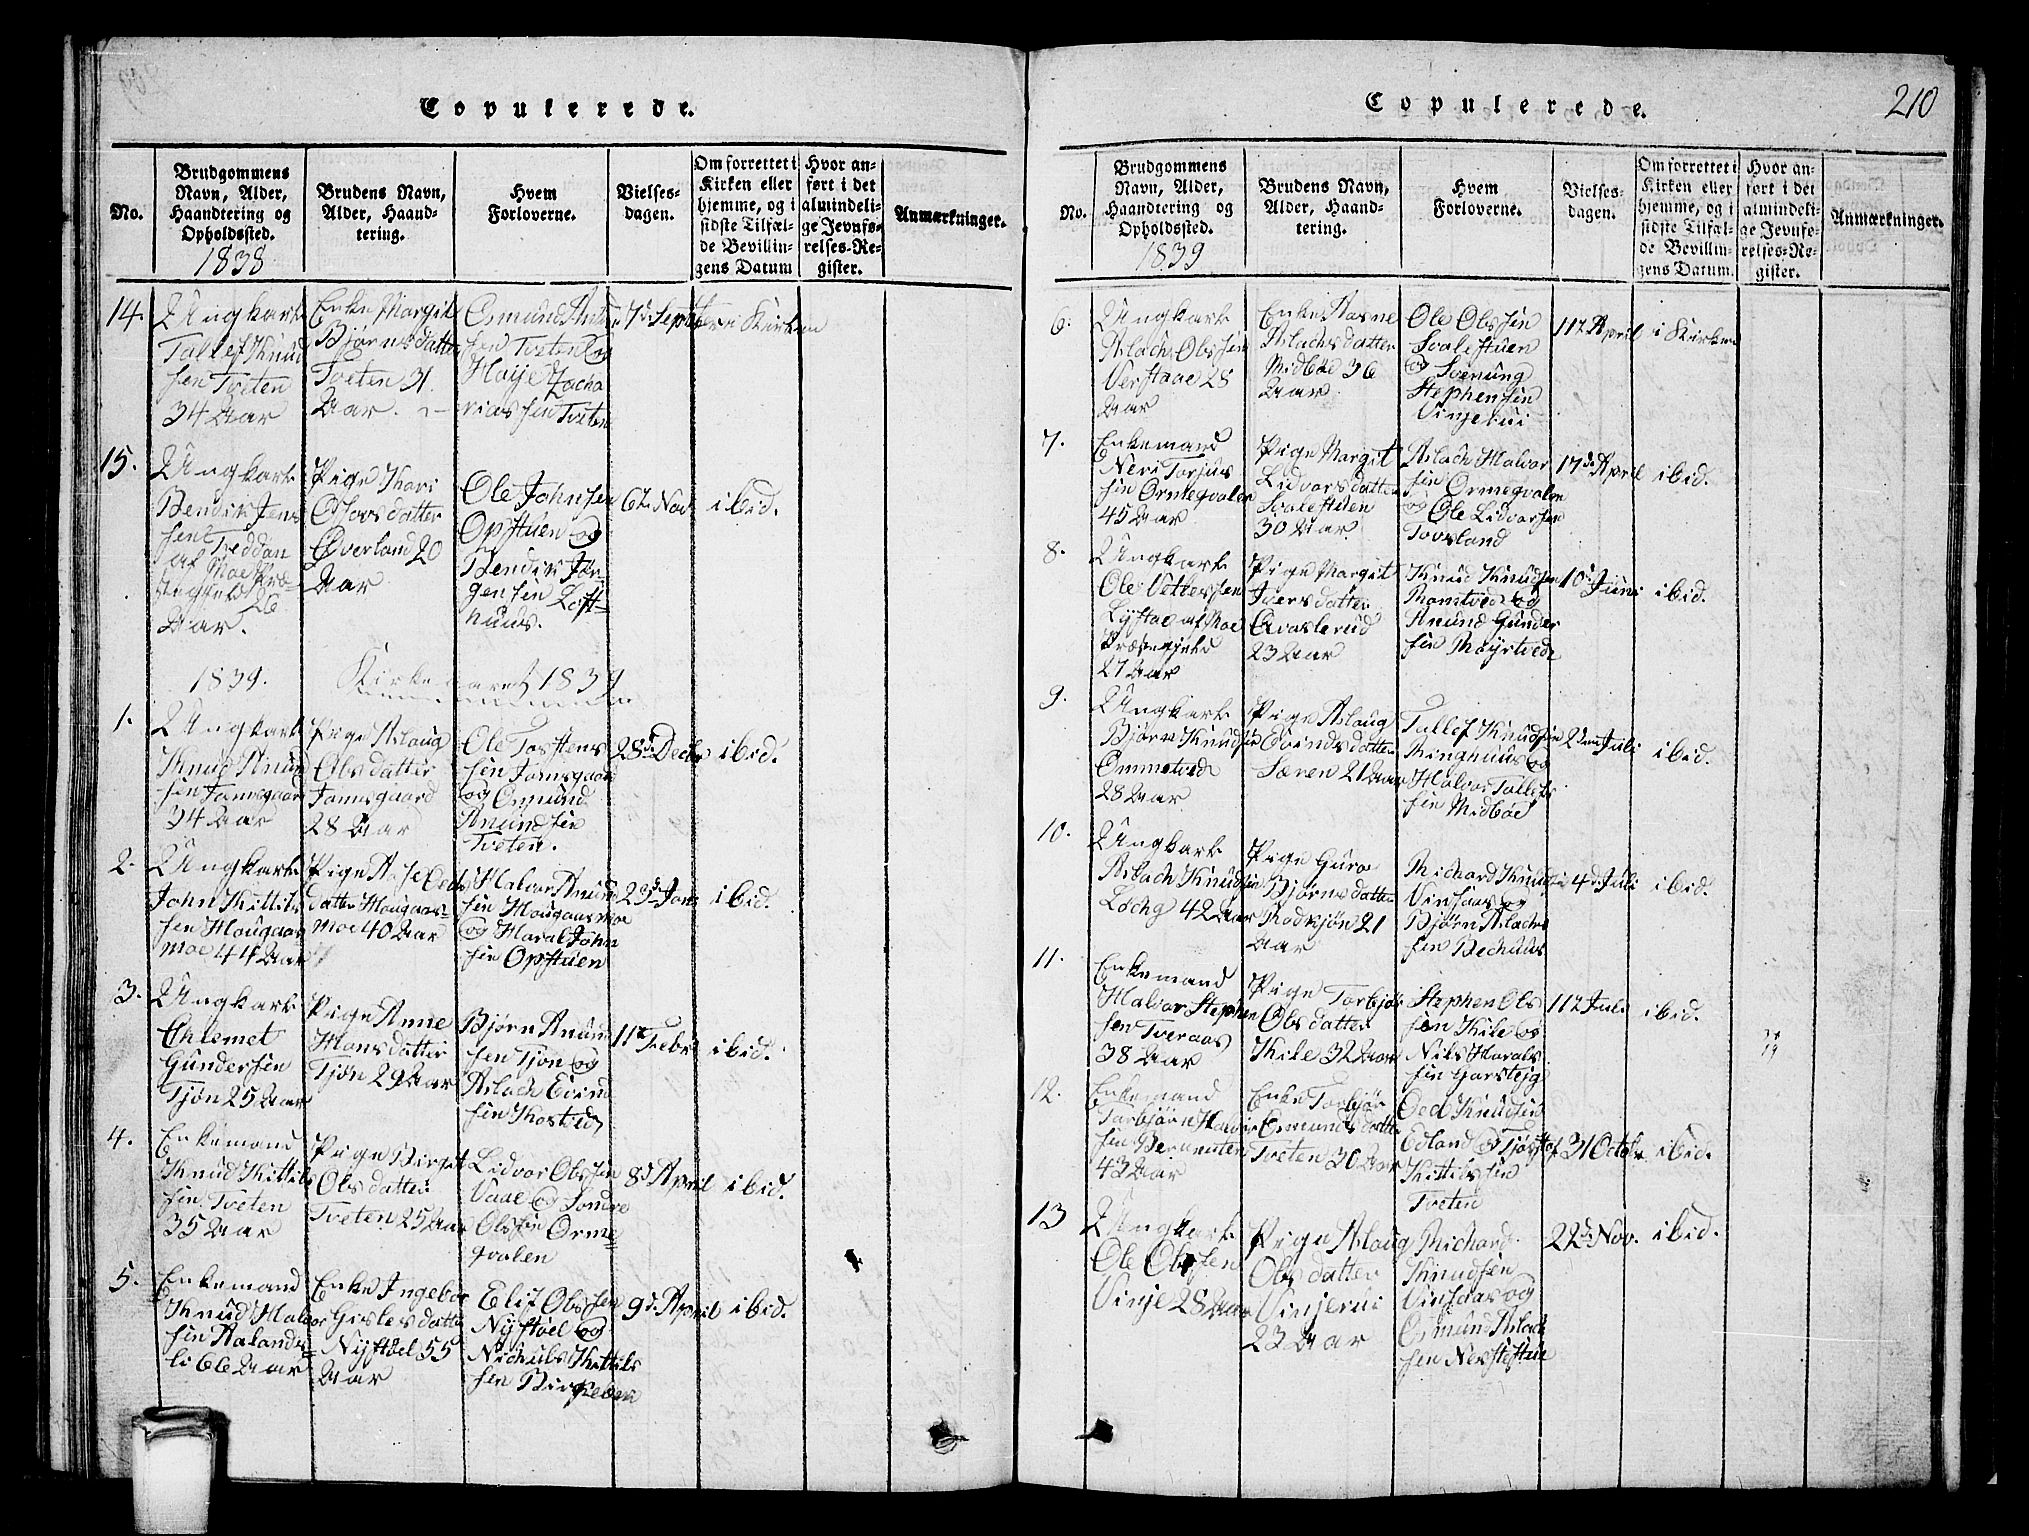 Copulerede.
No.
Brudgommens
Navn, Alder,
Haandtering og
Opholdssted.
1838
Brudens Navn,
Alder, Haand-
tering.
Hvem
Forloverne.
Vielses-
dagen.
Om forrettet i
Kirken eller
hjemme, og i
sidste Tilfæl-
de Bevillin-
gens Datum
Hvor an-
ført i det
almindeli-
ge Jevnfø-
relses-Re-
gister.
Anmærkninger.
14.
Ungkarl
Tallef Knud
sen Tveten
34 Aar
Enke Margit
Bjørnsdatter
Tveten 31.
Aar.
Osmund
sen Tveten og
Høije Zacha
riassen Tveten
7d Septbr
i Kirken
15.
Ungkarl
Bendik Jens
sen Treddan
af Moe Præ-
26
Aar.
Pige Kari
Olovsdatter
Øverland 20
Aar
Ole Johnsen
Opstuen og
Bendik Jør
gensen Loft-
huus.
6te Nov
ibid.
1839.
Kirkeaaret 1839
1.
Ungkarl
Knud Anund
sen Jamsgaard
34 Aar
Pige Aslaug
Olsdatter
Jamsgaard
28 Aar
Ole Tostens
sen Jamsgaard
og Osmund
Anundsen
Tveten.
28d Decbr
ibid.
2.
Ungkarl
John Kittils
sen Haugaas
moe 44 Aar
Pige Aase Oeds
datter Haugaas-
moe 40 Aar
Halvor Anund
sen Haugaasmoe
og Haral John
sen Opstuen
23d Jan
ibid.
3.
Ungkarl
Ehlemet
Gundersen
Tjøn 25 Aar
Pige Anne
Hansdatter
Tjøn 29 Aar
Bjørn Anund
sen Tjøn og
Aslach Eivind
sen Kostved
11te Febr
ibid.
4.
Enkemand
Knud Kittils
sen Tveten
35 Aar
Pige Birgit
Olsdatter
Tveten 25 Aar
Lidvor Olssen
Vaae og Sondre
Olssen Orme-
qvalen
8d April
ibid.
5.
Enkemand
Knud Halvor
sen Aalands-
li 66 Aar
Enke Ingebor
Gislesdatter
Nystøel 55
Aar
Elif Olssen
Nystøel og
Nichuls Kittils
sen Birkeben
9d April
ibid.
Copulerede.
210
No.
Brudgommens
Navn, Alder,
Haandtering og
Opholdssted.
1839
Brudens Navn,
Alder, Haand-
tering.
Hvem
Forloverne.
Vielses-
dagen.
Om forrettet i
Kirken eller
hjemme, og i
sidste Tilfæl-
de Bevillin-
gens Datum.
Hvor an-
ført i det
almindeli-
ge Jevnfø-
relses-Re-
gister.
Anmærkninger.
6.
Ungkarl
Aslach Olssen
Verstaae 28
Aar
Enke Aasne
Aslachsdatter
Midbøe 36
Aar
Ole Olssen
Svalestuen
og Svenung
Stephensen
Vinjerui
11te April
i Kirken
7.
Enkemand
Neri Torjus
sen Ormeqvalen
45 Aar
Pige Margit
Lidvorsdatter
Svalestuen
30 Aar.
Aslach Halvor
sen Ormeqvalen
og Ole Lidvorsen
Tovsland
17d April
ibid.
8.
Ungkarl
Ole Vetlessen
Lystae af Moe
Præstegjeld
27 Aar
Pige Margit
Iversdatter
Qvaslerud
23 Aar
Knud Knudsen
Ramtved og
Anund Gunder
sen Røystved
10d Juni
ibid.
9.
Ungkarl
Bjørn Knudsen
Ommetved
28 Aar
Pige Aslaug
Evindsdatter
Særen 21 Aar
Tallef Knudsen
Ringhuus og
Halvor Tallefs
sen Midbøe
2den Juli
ibid.
10.
Ungkarl
Aslach Knudsen
Løchg 42 Aar
Pige Guro
Bjørnsdatter
Rodksjøn 21
Aar
Richard Knudsen
Vinsaas og
Bjørn Aslachs
sen Bechuus
4d Juli
ibid.
11.
Enkemand
Halvor Stephen
sen Tveraas
38 Aar
Pige Torbjør
Olsdatter
Kile 32 Aar
Stephen Ols
sen Kile og
Nils Harals
sen Garsteig
11te Juli
ibid.
12.
Enkemand
Torbjørn Halvor
sen Bernuten
43 Aar
Enke Torbjør
Osmundsdatter
Tveten 30 Aar
Oed Knudsen
Edland og Tjøstof
Kittilssen
Tveten
31 Octobr
ibid.
13
Ungkarl
Ole Olssen
Vinje 28 Aar
Pige Aslaug
Olsdatter
Vinjerui
23 Aar
Richard
Knudsen
Vinsaas og
Osmund Aslach
sen Nerstestue
22d Nov.
ibid.